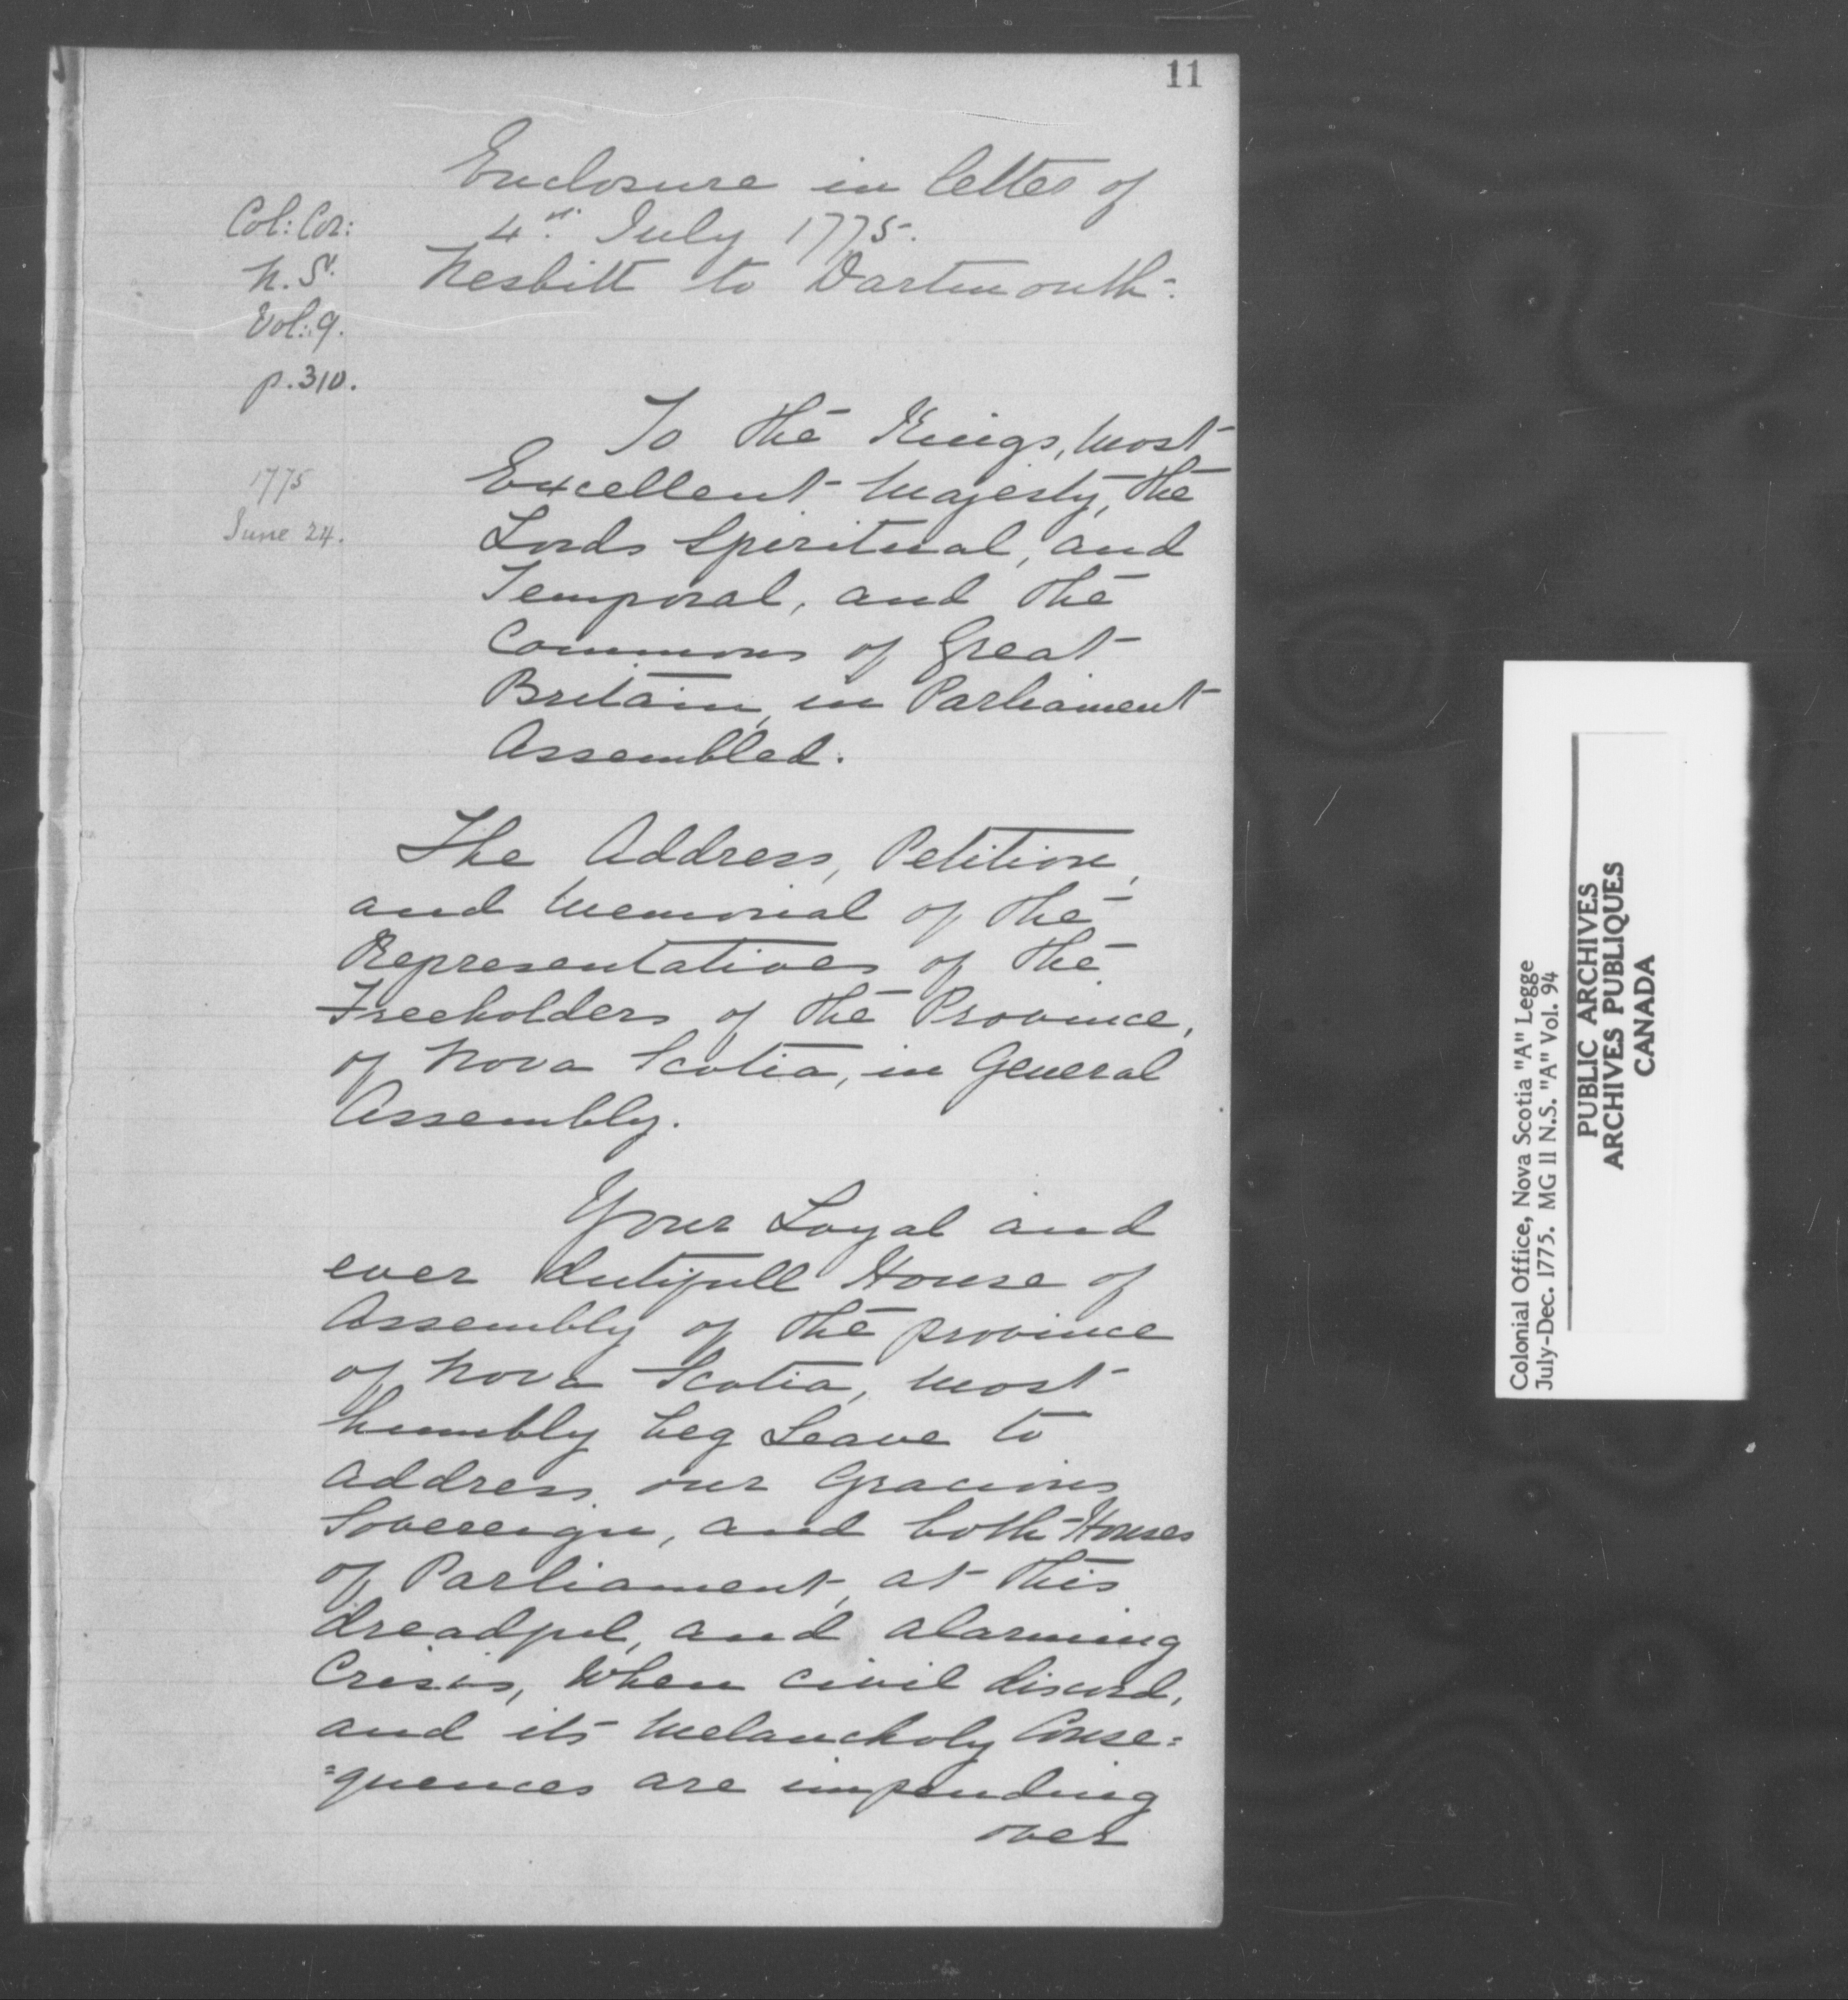 11
Enclosure in letter of
4th. July 1775.
Nesbitt to Dartmouth.
Col: Cor:
N. S.
Vol: 9.
p. 310.
1775
June 24.
To the Kings, most
Excellent Majesty, the
Lords Spiritual, and
Temporal, and the
Commons of Great
Britain, in Parliament
Assembled.
The Address, Petition,
and Memorial of the
Representatives of the
Freeholders of the Province,
of Nova Scotia, in General
Assembly.
Your Loyal and
ever dutifull House of
Assembly of the province
of Nova Scotia, most
humbly beg Leave to
address our Gracious
Sovereign, and both Houses
of Parliament, at this
dreadful, and alarming
Crisis, When civil discord,
and its Melancholy Conse:
:quences are impending
over
Colonial Office, Nova Scotia "A" Legge
July-Dec. 1775. MG 11 N.S. "A" Vol. 94
PUBLIC ARCHIVES
ARCHIVES PUBLIQUES
CANADA